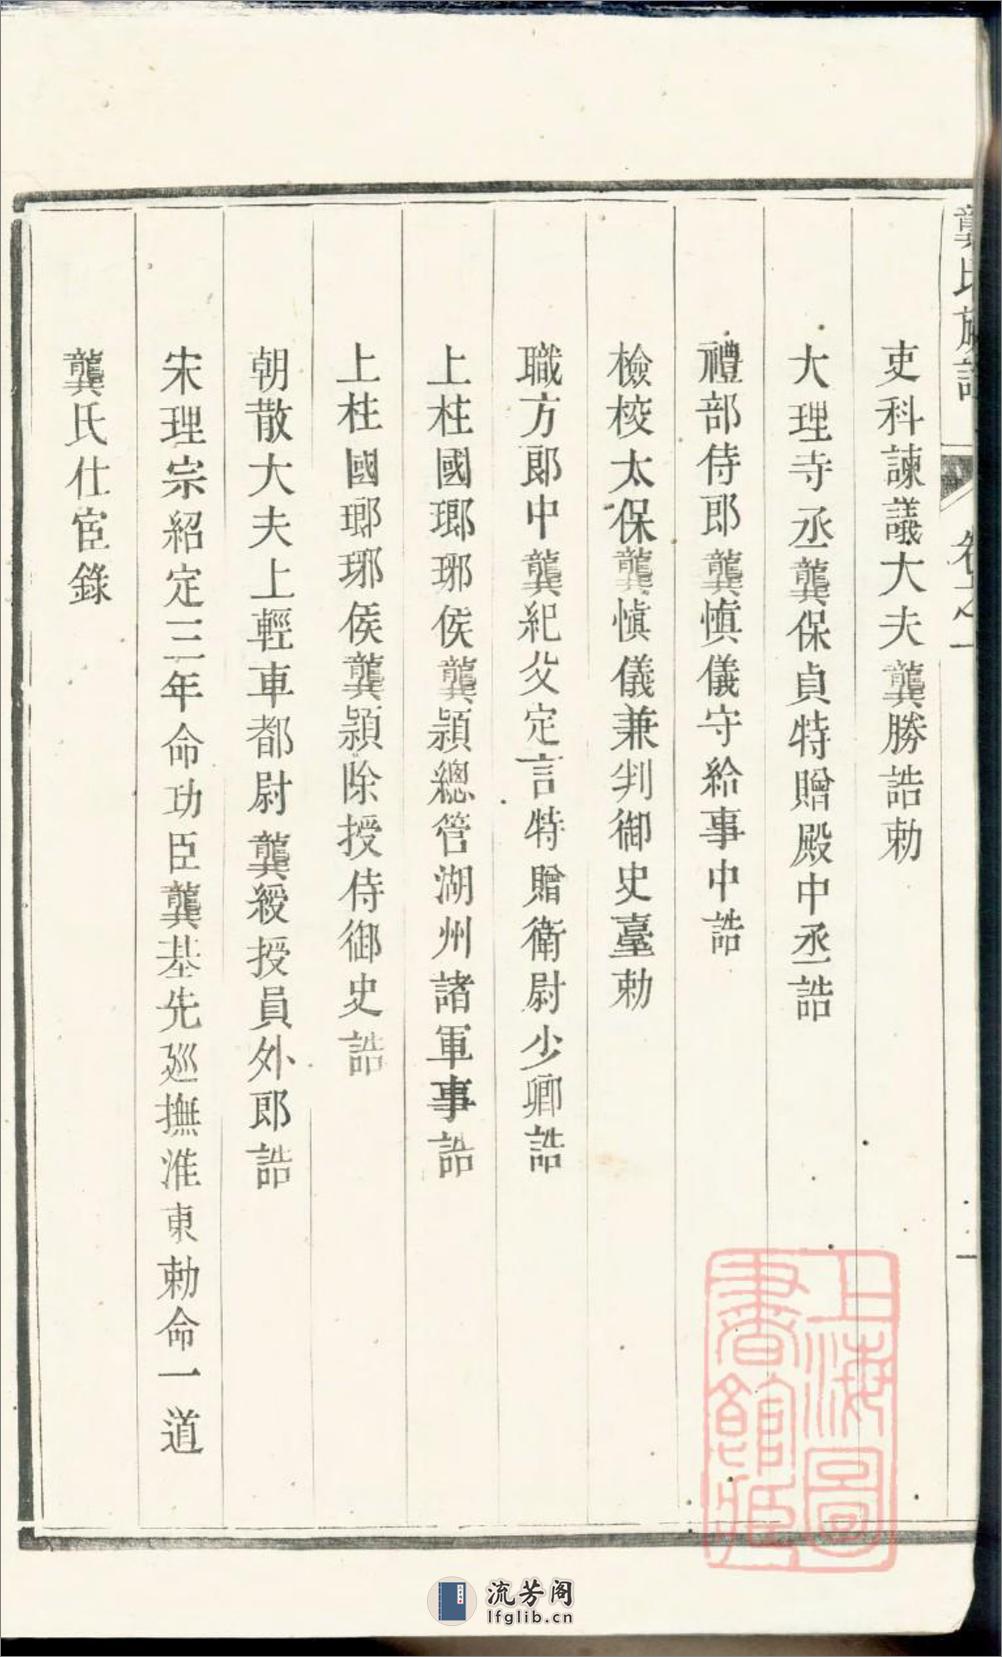 龔氏族譜 卷之一 一
吏科諫議大夫龔勝誥勅
大理寺丞龔保貞特贈殿中丞誥
禮部侍郎龔慎儀守給事中誥
檢校太保龔慎儀兼判御史臺勅
職方郎中龔紀父定言特贈衛尉少卿誥
上柱國瑯琊侯龔頴總管湖州諸軍事誥
上柱國瑯琊侯龔頴除授侍御史誥
朝散大夫上輕車都尉龔綬授員外郎誥
宋理宗紹定三年命功臣龔基先廵撫淮東勅命一道
龔氏仕宦錄
上海圖
書館藏
流芳阁
lfglib.cn